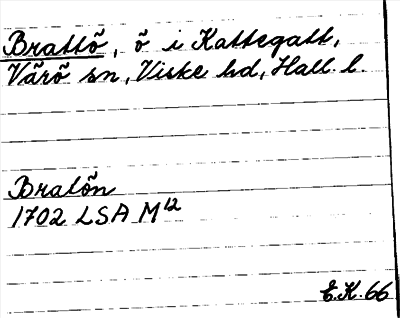 Brattö, ö i Kattegatt,
Värö sn, Viske hd, Hall. l.
Bratön
1702 LSA M12
E.K. 66